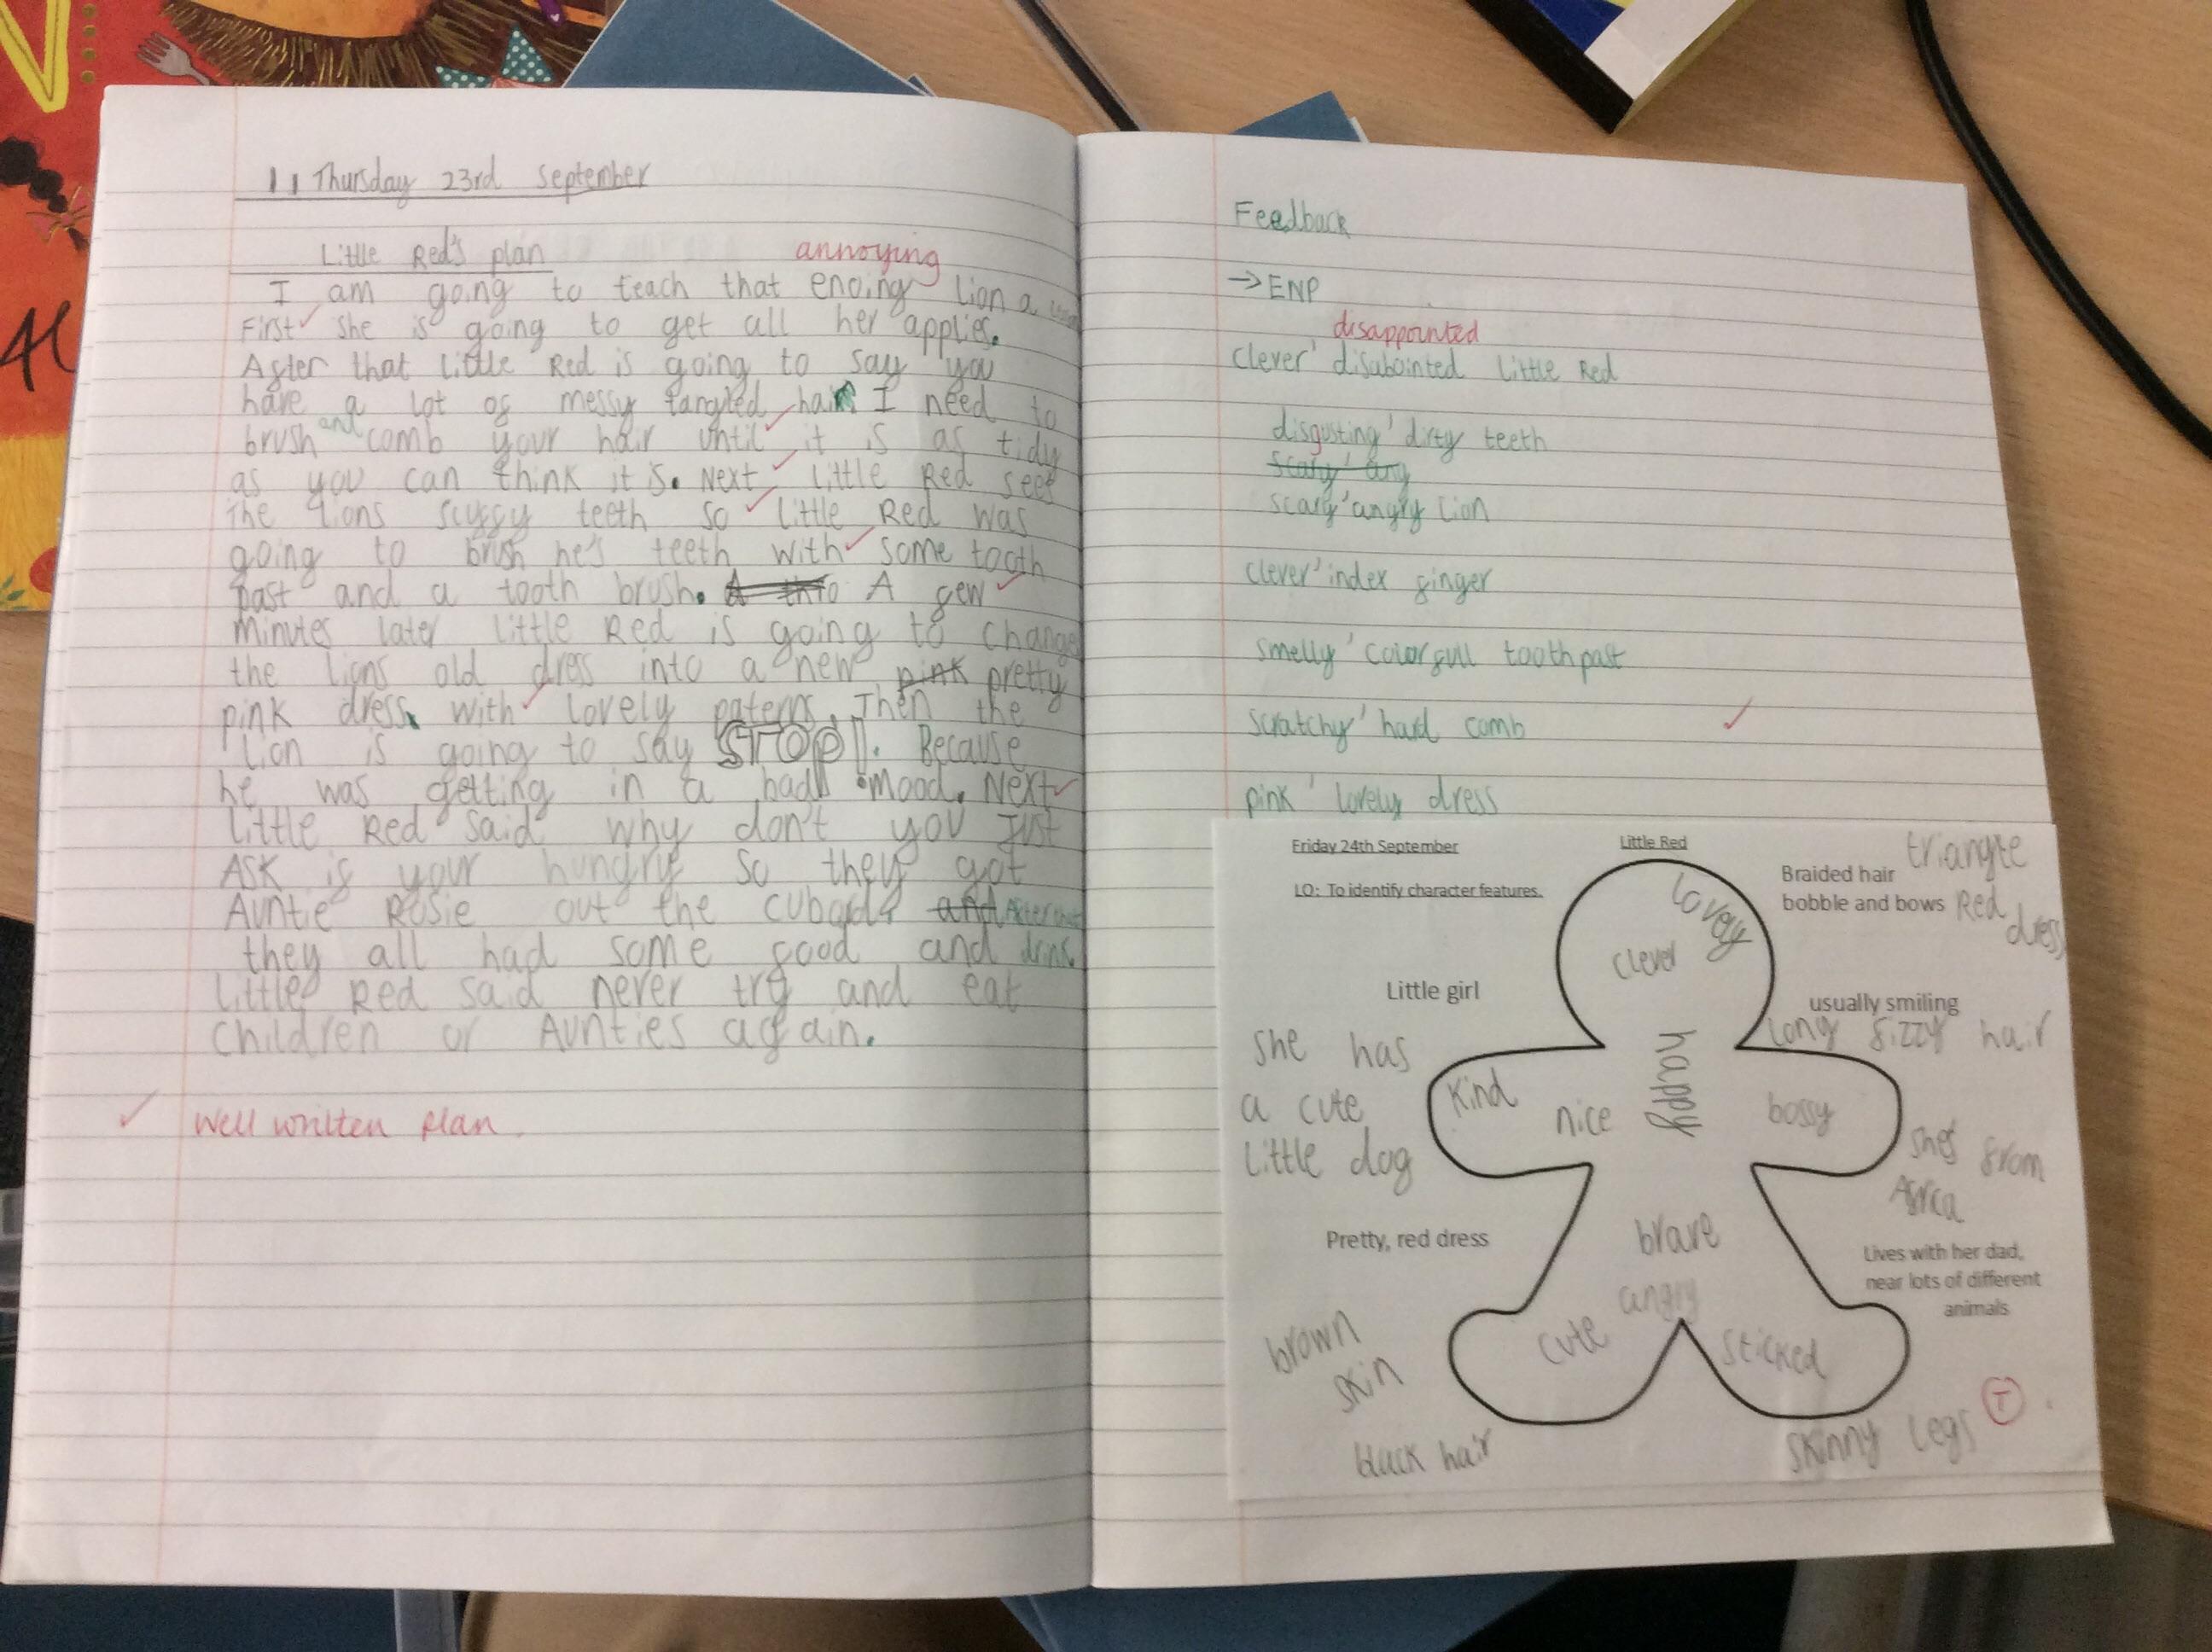 11 Thursday 23rd September
Little Red's plan
annoying
I am going to teach that enoing lion a
First she is going to get all her applies.
After that Little Red is going to say you
have a lot of messy tangled hair I need to
brush and comb your hair until it is as tidy
as you can think it is. Next Little Red sees
The lions scuffy teeth so Little Red was
going to brush he's teeth with some tooth
past and a tooth brush. A few
minutes later Little Red is going to change
the lions old dress into a new pink pretty
pink dress with lovely paterns. Then the
Lion is going to say STOP!. Because
he was getting in a bad mood. Next
Little Red said why don't you Just
ASK if your hungry so they got
Auntie Rosie out the cubard and After that
they all had some food and drink
Little Red said never try and eat
children or Aunties again.
Well written plan.
Feedback
→ENP
disappointed
clever' disabointed Little Red
disgusting' dirty teeth
scary' ang
scary' angry Lion
clever' index finger
smelly' colorfull toothpast
scratchy' hard comb
pink' lovely dress
Friday 24th September
Little Red
LO: To identify character features.
Braided hair triangle
bobble and bows Red
dress
lovely
clever
Little girl
usually smiling
long fizzy hair
she has
a cute
little dog
Kind
nice
happy
bossy
shes from
Africa
Pretty, red dress
brave
angry
cute
sticked
Lives with her dad,
near lots of different
animals
brown
skin
black hair
skinny legs
T